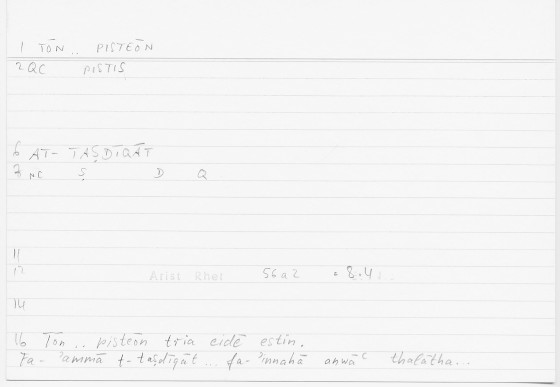 1 TŌN .. PISTEŌN
2 QC PISTIS
6 AT- TAṢDĪQĀT
7 NC Ṣ D Q
11
12 Arist Rhet 56a2 = 8.4
14
16 Tōn .. pisteōn tria eidē estin.
Fa- ʾammā t-taṣdīqāt ... fa-ʾinnahā anwāʿ thalātha...